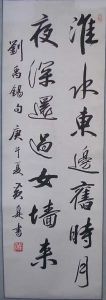 淮水東邊舊時月
夜深還過女墻来
劉禹錫句 庚午夏 書